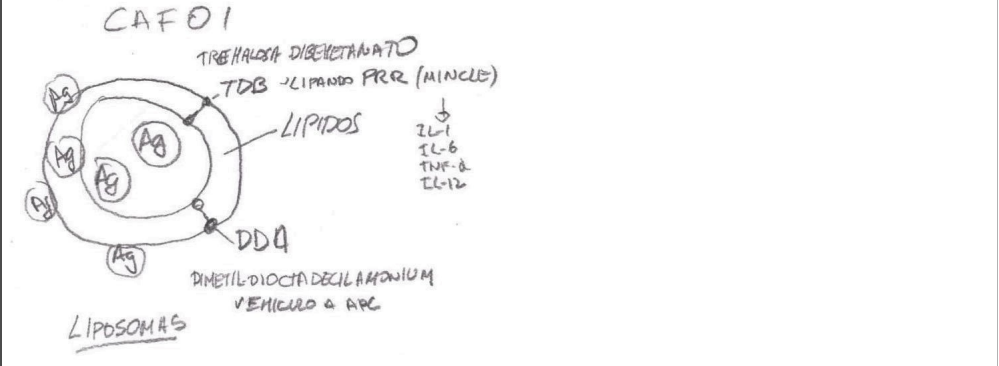 CAF01
TREHALOSA DIBEHETANATO
TDB → LIPANDO PRR (MINCLE)
LIPIDOS
IL-1
IL-6
TNF-α
IL-12
Ag
Ag
Ag
Ag
Ag
Ag
DDA
DIMETIL-DIOCTADECILAMONIUM
VEHICULO A APC
LIPOSOMAS